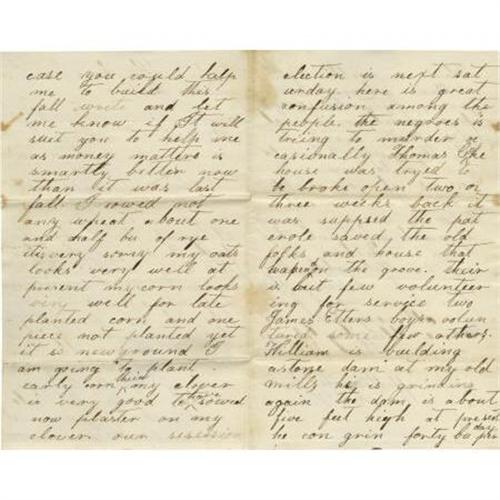 case you could help
me to build this
fall write and let
me know if It will
suit you to help me
as money matters is
smartly better now
than it was last
fall I sowed not
any wheat about one
and half bu of rye
its very sorry my oats
looks very well at
present my corn loops
very well for late
planted corn and one
piece not planted yet
it is new ground I
am going to plant
early corn this my clover
is very good to have sowed
now plaster on my
clover our secession
election is next sat
urday here is great
confusion among the
people. the negroes is
triing to murder oc
casionally Thomas
house was tryed to
be broke open two or
three weeks back it
was suppsed the pat
erole saved the old
folks and house that
was on the goove. their
is but few volunteer
ing for service two
James Etters boys volun
tured some few others.
William is building
a stone dam at my old
mills he is grinding
again the dam is about
five feet high at present
he con grin forty bu per day